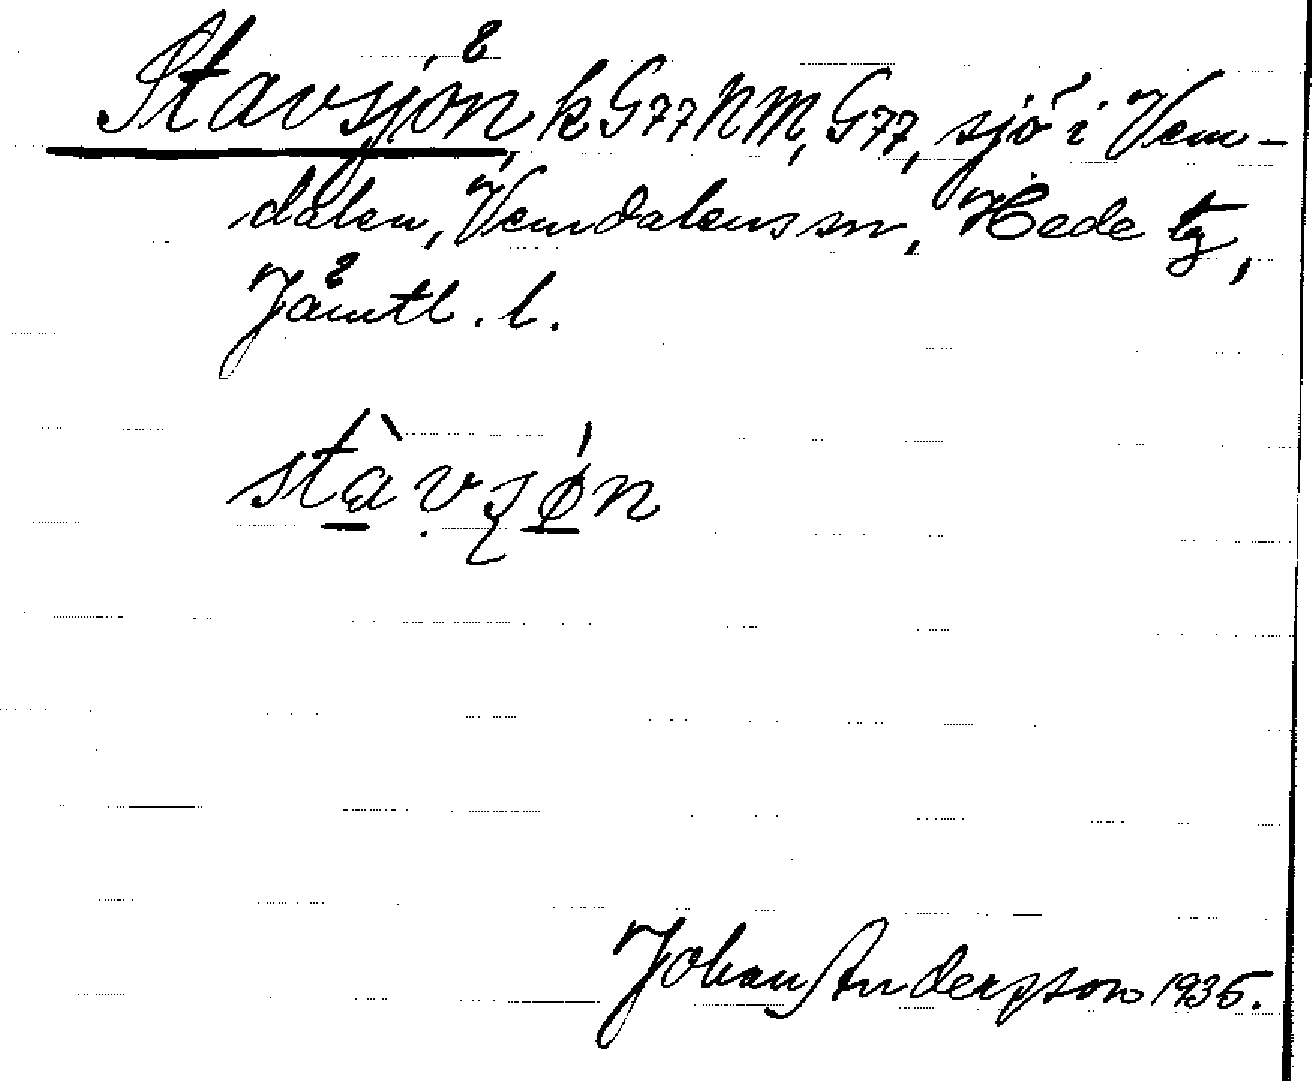 Stavsjön, k G77NM, G77, sjö i Vem-
dalen, Vemdalens sn, Hede tg,
Jämtl. l.
stàvsǿn
Johan Andersson 1935.